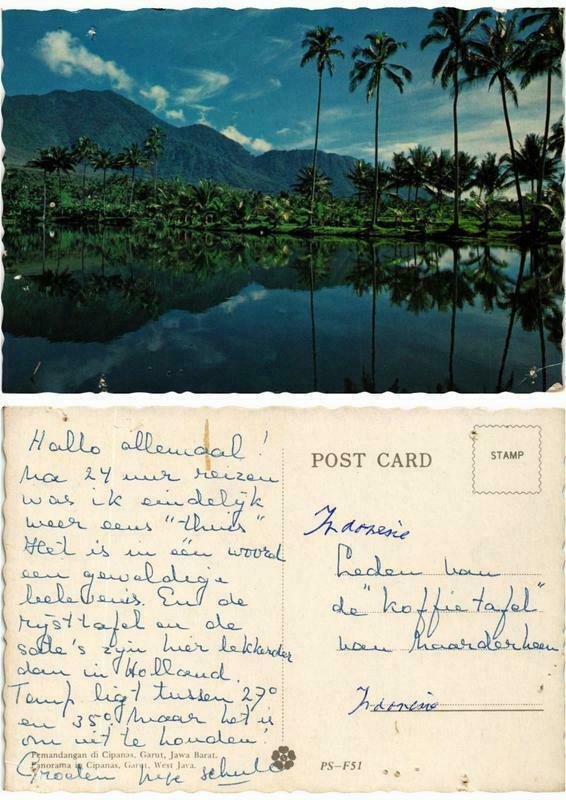 Hallo allemaal!
Na 24 uur reizen
was ik eindelijk
weer eens "thuis"
Het is in één woord
een geweldige
belevenis. En de
rijsttafel en de
saté's zijn hier lekkerder
dan in Holland.
Temp. ligt tussen 27°
en 35° maar het is
om uit te houden!
Pemandangan di Cipanas, Garut, Jawa Barat.
Panorama in Cipanas, Garut, West Java.
Groeten
POST CARD
STAMP
Indonesie
Leden van
de "koffietafel"
van
Indonesie
PS-F51